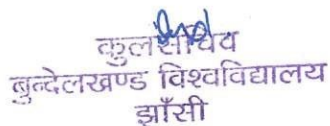 कुलसचिव
बुन्देलखण्ड विश्वविद्यालय
झाँसी